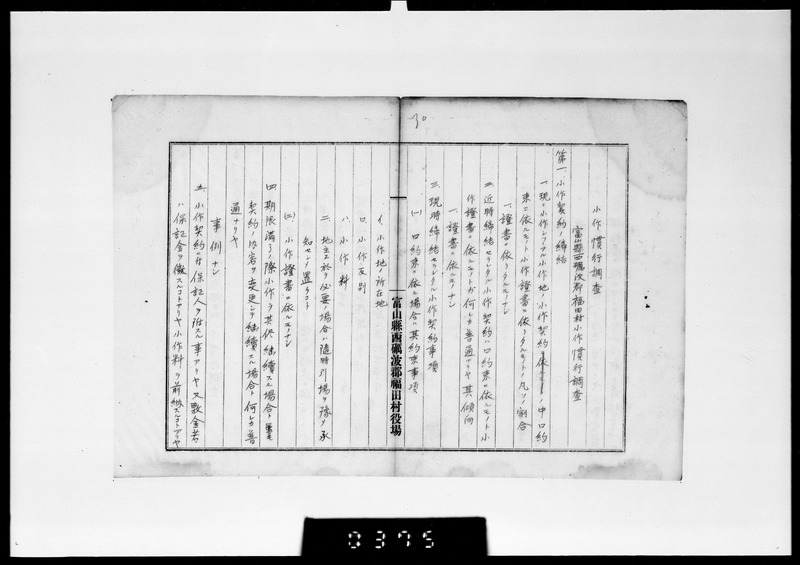 30
小作慣行調査
富山縣西礪波郡福田村小作慣行調査
第一、小作契約ノ締結
一、現ニ小作シツアル小作地ノ小作契約ノ中口約
束ニ依ルモノト小作證書ニ依リタルモノト凡ソノ割合
一、證書ニ依リタルモノナシ
二、近時締結セラレタル小作契約ハ口約束ニ依ルモノト小
作證書ニ依ルモノト何レガ普通ナリヤ其傾向
一、證書ニ依ルモノナシ
三、現時締結セラレタル小作契約事項
(一) 口約束ニ依ル場合ハ其約束事項
富山縣西礪波郡福田村役場
イ、小作地ノ所在地
ロ、小作反別
ハ、小作料
ニ、地主ニ於テ必要ノ場合ハ隨時引場ヲ豫メ承
知セシメ置クコト
(二) 小作證書ニ依ルモノナシ
四、期限滿了ノ際小作ヲ其侭継續スル場合ト
契約ノ内容ヲ変更シテ継續スル場合ト何レガ普
通ナリヤ
事例ナシ
五、小作契約ニ付保証人ヲ附スル事アリヤ又敷金若
ハ保証金ヲ徴スルコトアリヤ小作料ヲ前納スルコトアリヤ
0375